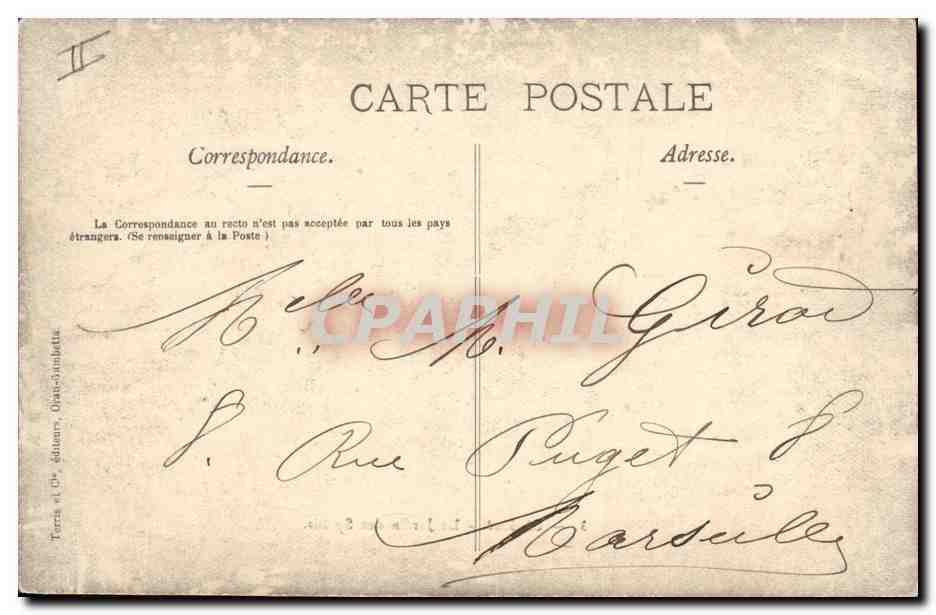 II
CARTE POSTALE
Correspondance.
Adresse.
La Correspondance au recto n'est pas acceptée par tous les pays
étrangers. (Se renseigner à la Poste)
Melle M. Girod
8. Rue Puget 8
Marseille
Terris et Cie, éditeurs, Oran-Gambetta
CPAPHIL